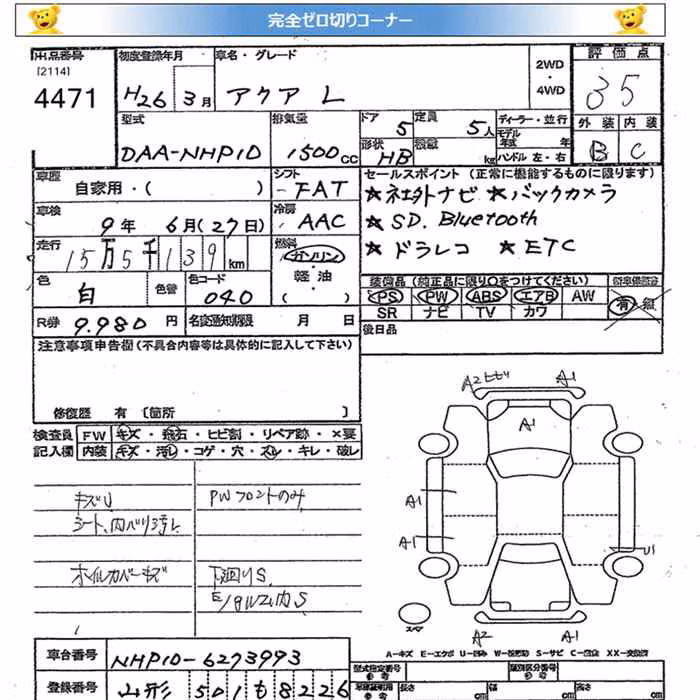 完全ゼロ切りコーナー
出品番号 初度登録年月 車名・グレード 2WD・4WD 評価点
[2114]
4471 H26 3月 アクア L 35
型式 排気量 ドア 定員 ディーラー・並行 外装 内装
DAA-NHP10 1500cc 5 5人 モデル年式 年 B C
形状 HB 積載量 kg ハンドル 左・右
車歴 自家用・( ) シフト FAT セールスポイント(正常に機能するものに限ります)
車検 9年 6月(27日) 冷房 AAC ★社外ナビ ★バックカメラ
★SD. Bluetooth
走行 15万5千139km 燃料 ガソリン・軽油・( ) ★ドラレコ ★ETC
色 白 色替 色コード 040 装備品(純正品に限り○をつけてください)
PS PW ABS エアB AW 有・無
SR ナビ TV カワ
R券 9.980円 名変通知期限 月 日 後日品
注意事項申告欄(不具合内容等は具体的に記入して下さい)
修復歴 有[箇所 ]
検査員 FW キズ・飛石・ヒビ割・リペア跡・×要
記入欄 内装 キズ・汚レ・コゲ・穴・スレ・キレ・破レ
キズU PWフロントのみ
シート、内バリ汚レ
ホイルカバーキズ 下廻りS
E/gルーム内S
A2ヒビ A1
A1
A1
A1 U1
スペア
A2 A1
A-キズ E-エクボ U-凹み W-波 S-サビ C-腐食 XX-交換済
車台番号 NHP10-6273993 型式指定番号 類別区分番号
登録番号 山形 501 も 8226 長さ cm 幅 cm 高さ cm